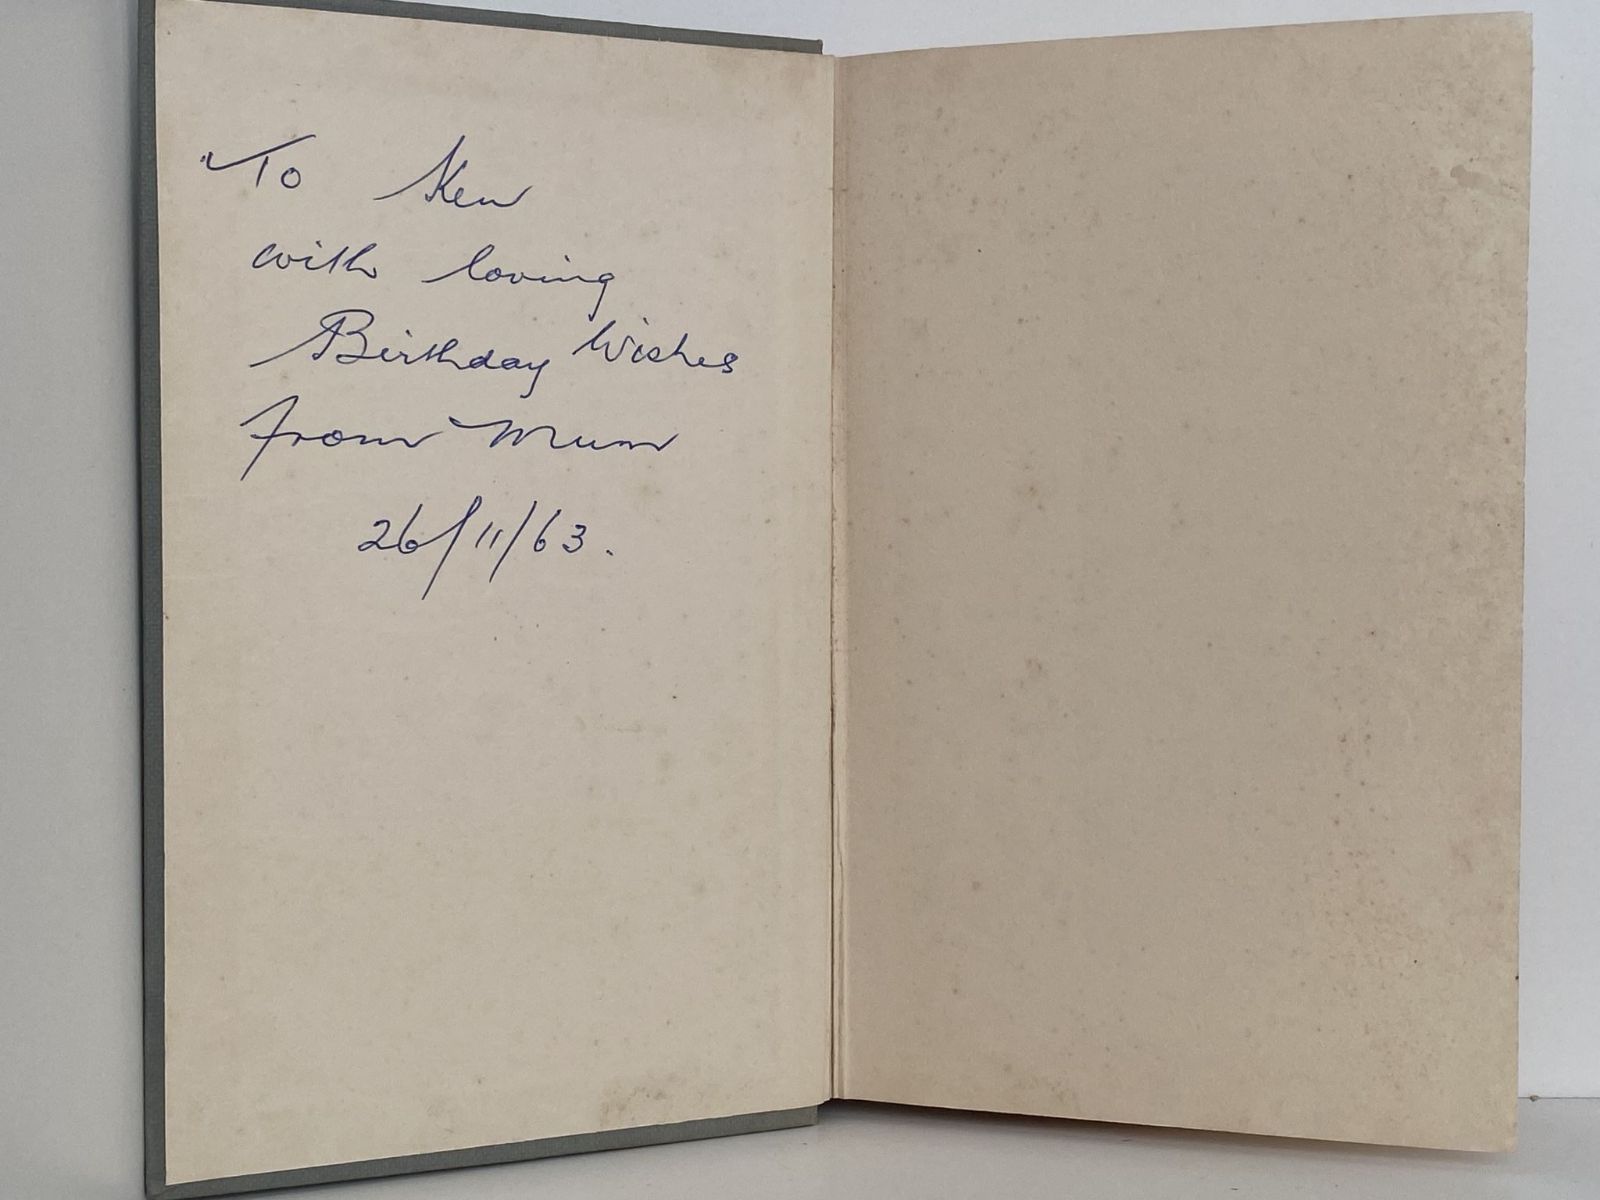 To Ken
with loving
Birthday Wishes
from Mum
26/11/63.